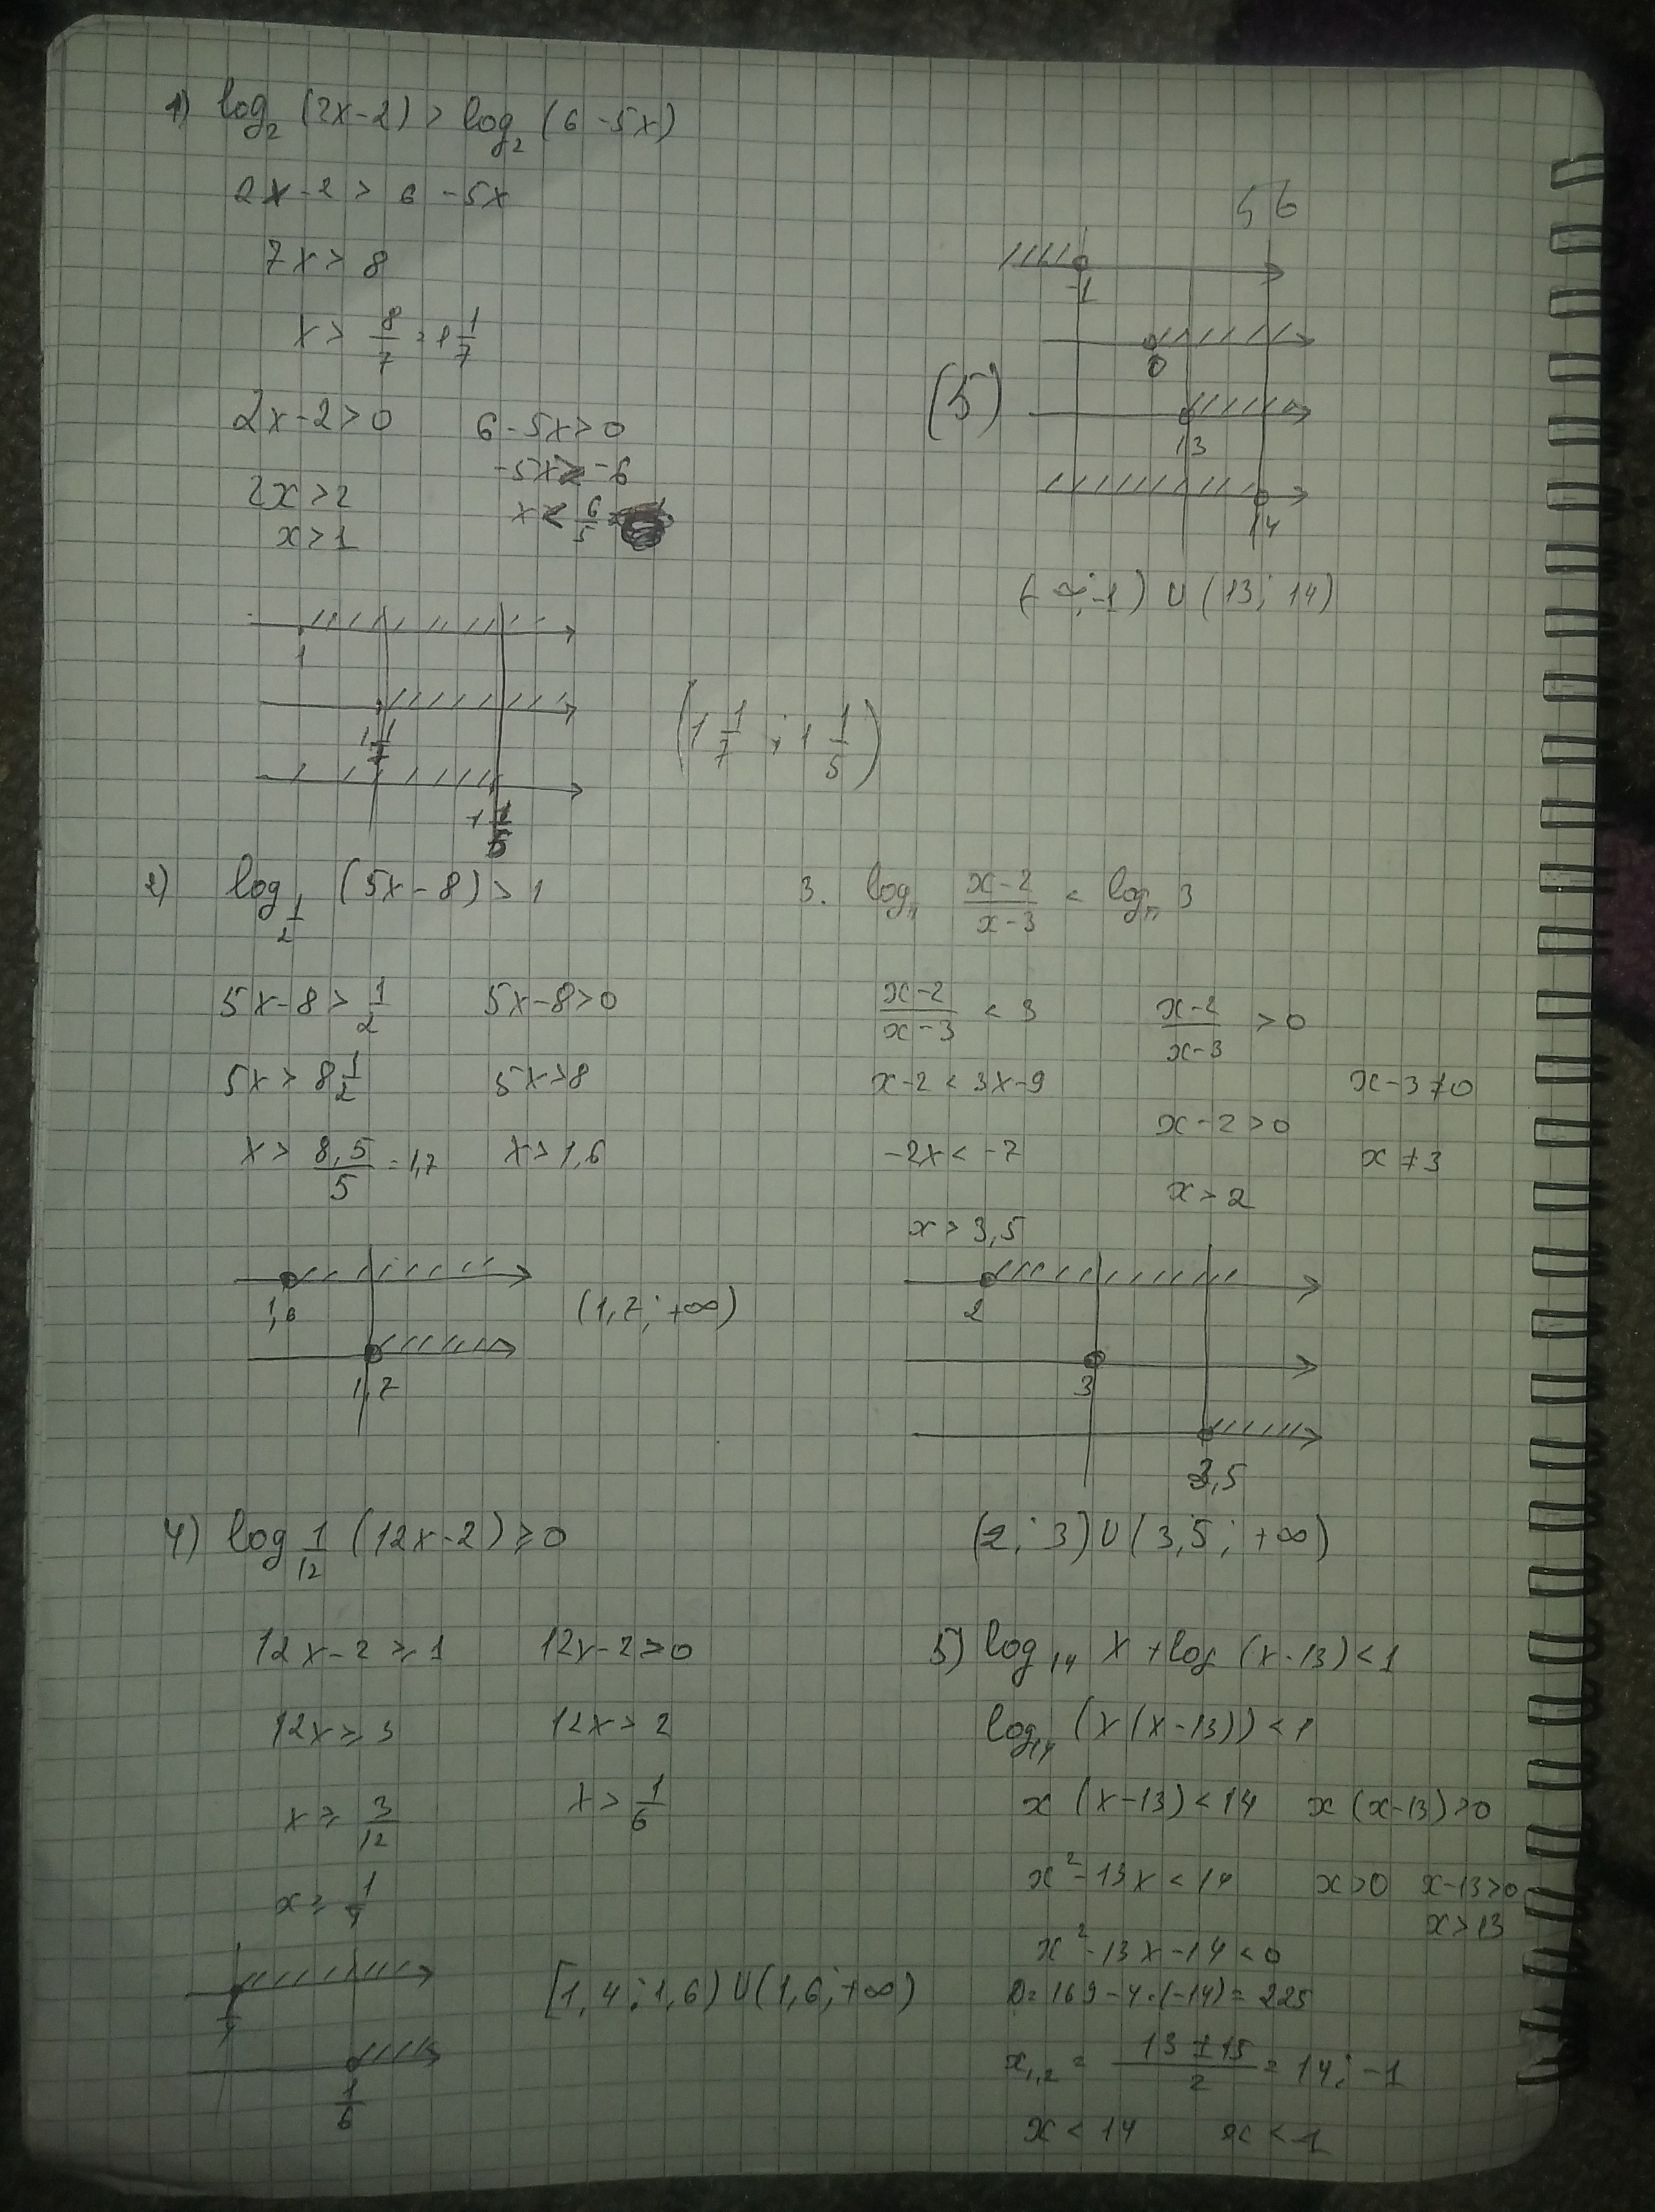 1) log₂ (2x-2) > log₂ (6-5x)
2x-2 > 6-5x
7x > 8
x > 8/7 = 1 1/7
2x-2>0 6-5x>0
-5x > -6
2x>2
x < 6/5
x>1
1
1 1/7
1 1/5
(1 1/7 ; 1 1/5)
56
-1
0
(5)
13
14
(-∞;-1) ∪ (13; 14)
2) log_1/2 (5x-8) > 1
5x-8 > 1/2 5x-8>0
5x > 8 1/2 5x>8
x > 8,5/5 = 1,7 x > 1,6
1,6
(1,7; +∞)
1,7
3. log_π (x-2)/(x-3) < log_π 3
(x-2)/(x-3) < 3 (x-2)/(x-3) > 0
x-2 < 3x-9 x-3≠0
x-2>0
-2x < -7 x≠3
x > 2
x > 3,5
2
3
3,5
(2; 3) ∪ (3,5; +∞)
4) log_1/12 (12x-2) ≥ 0
12x-2 ≥ 1 12x-2>0
12x ≥ 3 12x > 2
x ≥ 3/12 x > 1/6
x ≥ 1/4
1/4
[1,4; 1,6) ∪ (1,6; +∞)
1/6
5) log₁₄ x + log (x-13) < 1
log₁₄ (x(x-13)) < 1
x (x-13) < 14 x (x-13)>0
x²-13x < 14 x>0 x-13>0
x>13
x²-13x-14<0
D = 169-4·(-14) = 225
x₁,₂ = (13±15)/2 = 14; -1
x < 14 x < -1